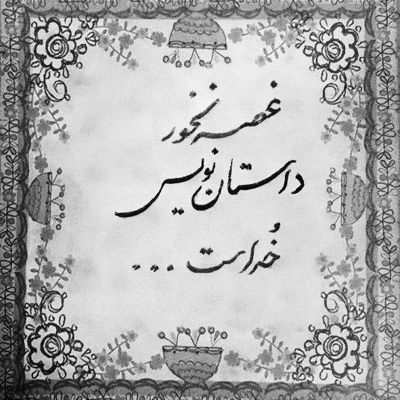 غصه نخور
داستان نویس
خُداست ...